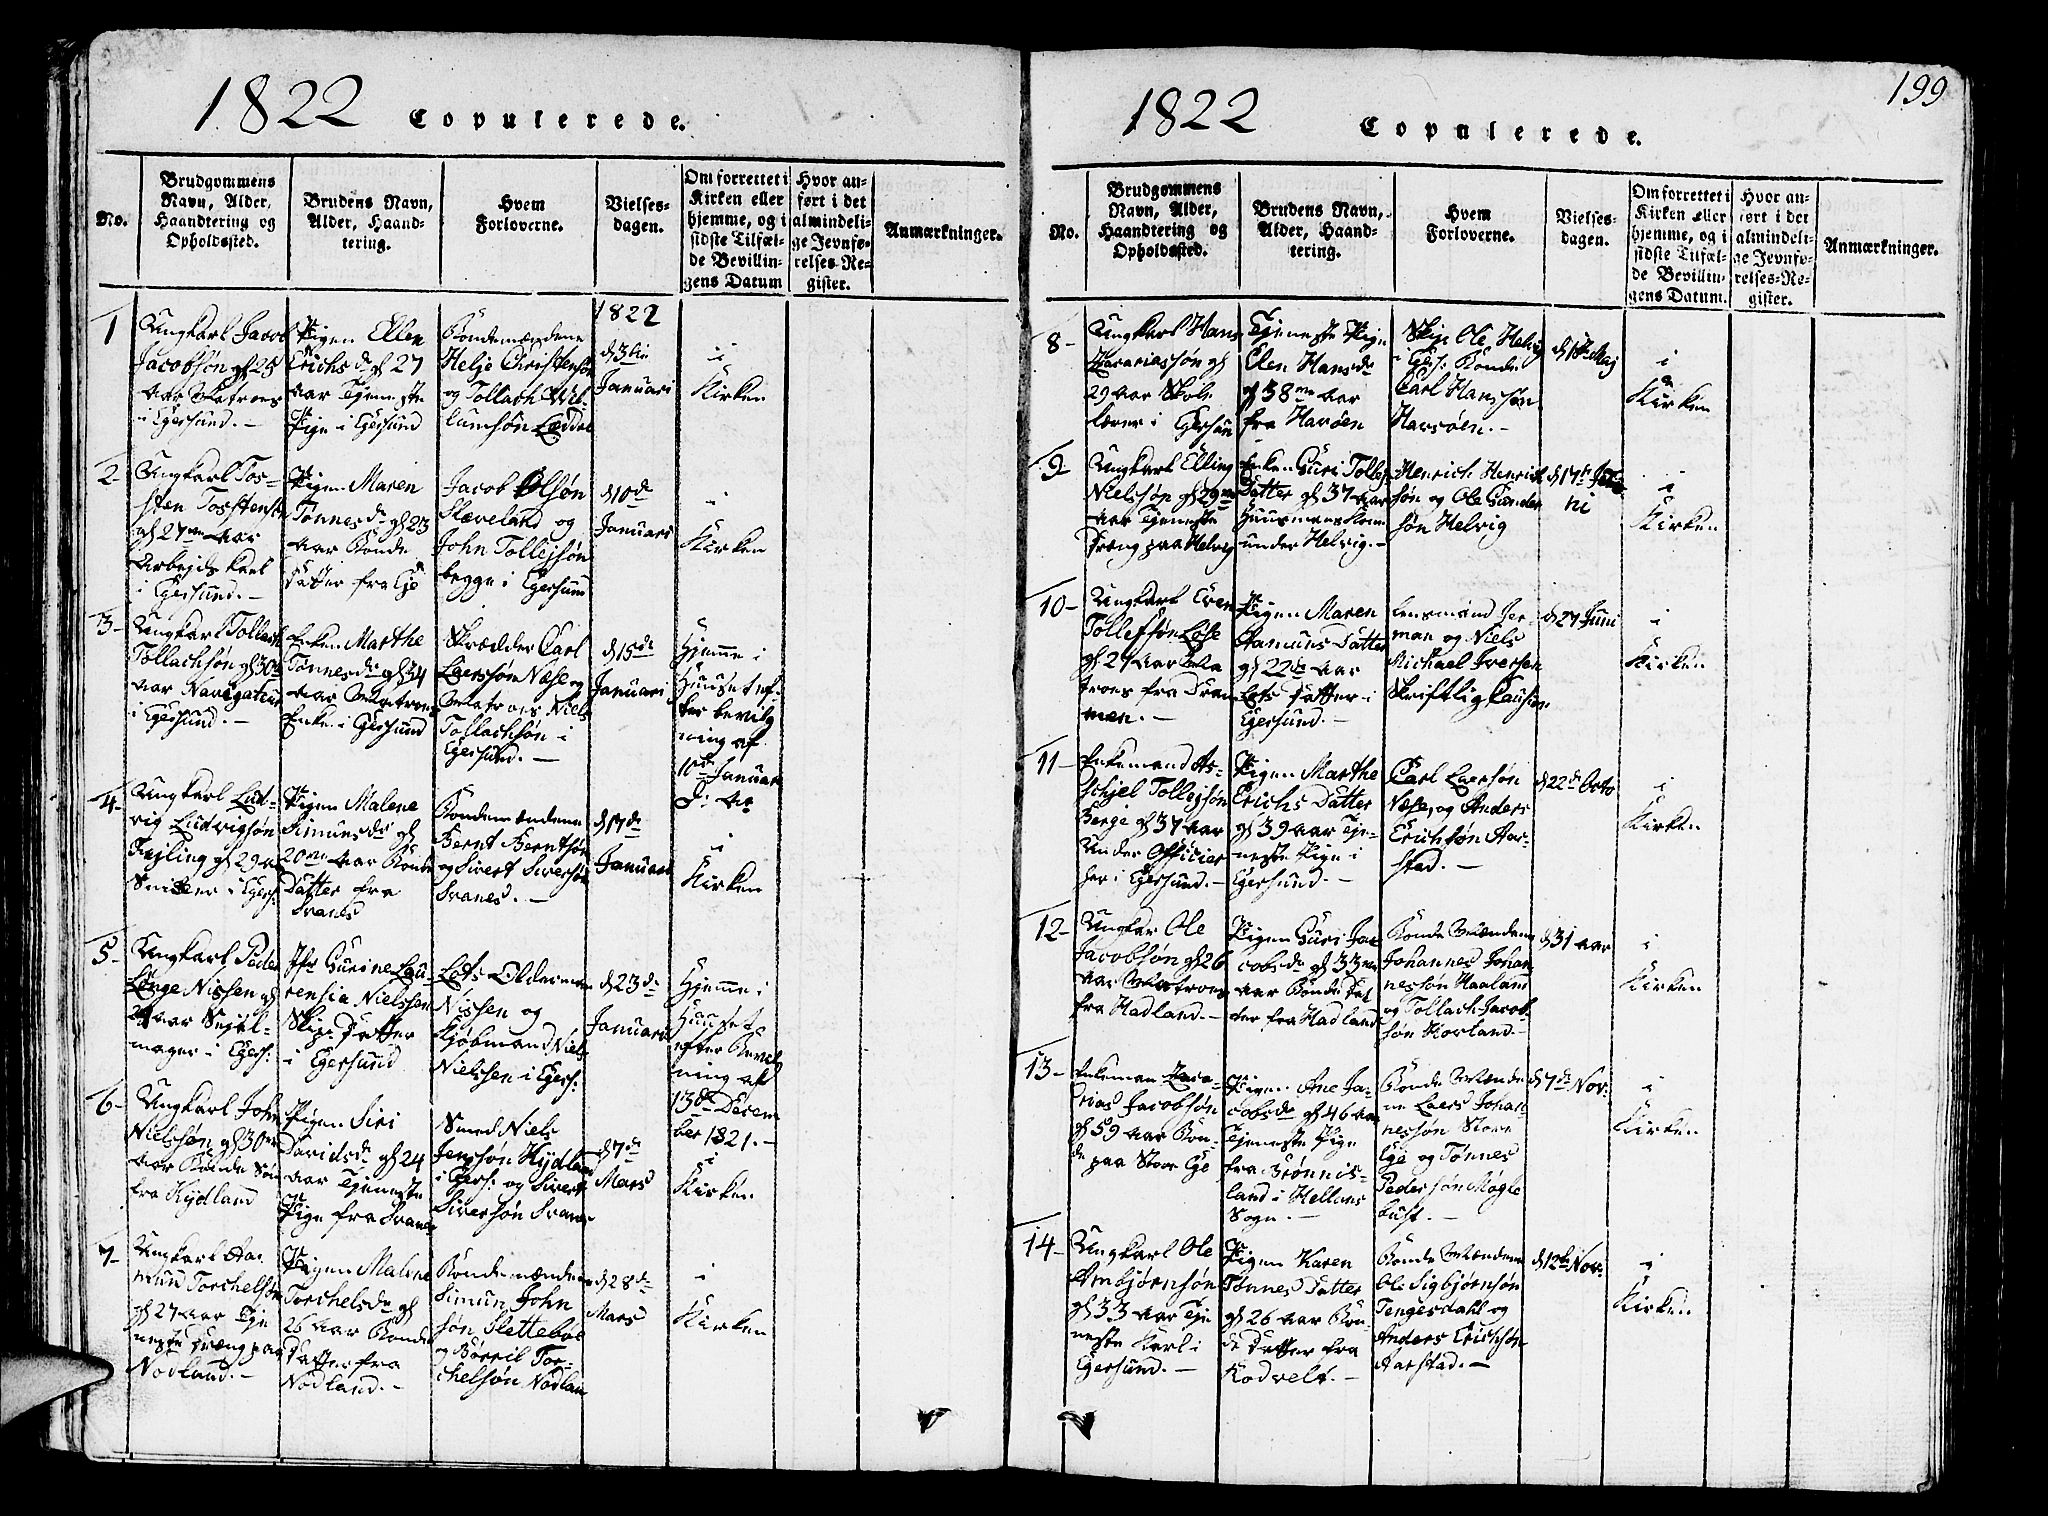 1822 Copulerede.
No.
Brudgommens
Navn, Alder,
Haandtering og
Opholdssted.
Brudens Navn,
Alder, Haand-
tering.
Hvem
Forloverne.
Vielses-
dagen.
Om forrettet i
Kirken eller
hjemme, og i
sidste Tilfæl-
de Bevillin-
gens Datum
Hvor an-
ført i det
almindeli-
ge Jevnfø-
relses-Re-
gister.
Anmærkninger.
1
Ungkarl Jacob
Jacobsøn gl 25
aar Matros
i Egersund. -
Pigen Ellen
Erichsdr gl 27
aar Tjeneste
Pige i Egersund
Bondemændene
Helje Christensøn
og Tollach Wil-
lumsøn
1822
d 3die
Januari
i
Kirken
2-
Ungkarl Tos-
sten Tosstensøn
gl 27 aar
Arbejds karl
i Egersund. -
Pigen Maren
Tønnesdr gl 23
aar Bonde
Datter fra Eje
Jacob Olsøn
Slæveland og
John Tollejsøn
begge i Egersund
d 10de
Januari
i
Kirken
3-
Ungkarl Tollach
Tollachsøn gl 30
aar Navigateur
i Egersund. -
Enken Marthe
Tønnesdr gl 34
aar Matros
Enke i Egersund
Skrædder Carl
Laersøn Næse og
Matros Niels
Tollachsøn i
Egersund. -
d 15de
Januari
Hjemme i
Huuset ef-
ter bevilg
ning af
10de Januar
4-
Ungkarl Lud-
vig Ludvigsøn
Fejling gl 29 aar
Snidker i Egers:
Pigen Malene
Simunsdr gl
20 aar Bonde
Datter fra
Svanes
Bondemændene
Bernt Berntsøn
og Sivert Siversøn
Svanes. -
d 17de
Januari
i
Kirken
5-
Ungkarl Peder
Lange Nissen gl
aar Sejel-
mager i Egers:
Jfr Gurine Lau-
rensia Nielssen
Skip. Datter
i Egersund
Lots Oldermand
Nissen og
Kjøbmand Niels
Nielssen i Egers:
d 23de
Januari
Hjemme i
Huuset
efter Bevil
ning af
13de Decem
ber 1821. -
6-
Ungkarl John
Nielssøn gl 30
aar Bonde Søn
fra Kydland
Pigen Siri
Davidsdr gl 24
aar Tjeneste
Pige fra Svanes
Smed Niels
Jenssøn Hydland
i Egers: og Sivert
Siversøn Svanes
d 7de
Mars
i
Kirken
7-
Ungkarl Aa-
mund Torchelsøn
gl 27 aar Tje
neste Dræng paa
Nodland. -
Pigen Malene
Torchelsdr gl
26 aar Bonde
Datter fra
Nodland. -
Bondemændene
Simun John
søn Slettebøe
og Børril Tor-
chelsøn Nodland
d 28de
Mars
i
Kirken
199
1822 Copulerede.
No.
Brudgommens
Navn, Alder,
Haandtering og
Opholdssted.
Brudens Navn,
Alder, Haand-
tering.
Hvem
Forloverne.
Vielses-
dagen.
Om forrettet i
Kirken eller
hjemme, og i
sidste Tilfæl-
de Bevillin-
gens Datum.
Hvor an-
ført i det
almindeli-
ge Jevnfø-
relses-Re-
gister.
Anmærkninger.
8-
Ungkarl Hans
Zacariassøn gl
29 aar Skole
lærer i Egersun
Tjeneste Pige
Elen Hansdr
gl 38 aar
fra Havsøen
Skip. Ole Helvig
i Egs: Bonde
Carl Hanssøn
Havsøen. -
d 1ste Maj
i
Kirken
9
Ungkarl Elling
Nielssøn gl 29
aar Tjeneste
Dræng paa Helvig
Enken Guri Tollejs
Datter gl 37 aar
Huusmans Kone
under Helvig. -
Henrich Henrich
søn og Ole Gunder
søn Helvig
d 17de Ju-
ni
i
Kirken
10-
Ungkarl Even
Tollefsøn Løse
gl 27 aar Ma
tros fra Dram
men. -
Pigen Maren
Aamuns Datter
gl 22de aar
Lots Datter i
Egersund. -
Lensmand Jer-
man og Niels
Michael Iversen
Skriftlig Causion
d 27 Juni
i
Kirken
11-
Enkemand As-
schjel Tollejsøn
Berge gl 37 aar
Under Officier
her i Egersund. -
Pigen Marthe
Erichs Datter
gl 39 aar Tje-
neste Pige i
Egersund. -
Carl Laersøn
Næse, og Anders
Erichsøn Aar-
stad. -
d 22de Octo
i
Kirken
12-
Ungkar Ole
Jacobsøn gl 26
aar Matros
fra Hadland. -
Pigen Guri Ja-
cobsdr gl 33
aar Bonde Dat
ter fra Hadland
Bonde Mændene
Johannes Johan
nessøn Haaland
og Tollach Jacob
søn Horland. -
d 31 aar
i
Kirken
13-
Enkeman Zaca-
rias Jacobsøn
gl 59 aar Bon-
de paa Stoor Eje
Pigen Ane Ja-
cobsdr gl 46 aar
Tjeneste Pige
fra Brønnis-
land i Hellans
Sogn. -
Bonde Mænde
ne Laers Johan
nessøn Store
Eje og Tønnes
Pedersøn Møgle
bust. -
d 7de Nov:
i
Kirken
14-
Ungkarl Ole
Ambjørnsøn
gl 33 aar Tje
neste Karl i
Egersund. -
Pigen Karen
Tønnes Datter
gl 26 aar Bon-
de Datter fra
Kodvelt. -
Bonde Mændene
Ole Sigbjørnsøn
Tengesdahl og
Anders Erichsøn
Aarstad. -
d 12te Nov:
i
Kirken